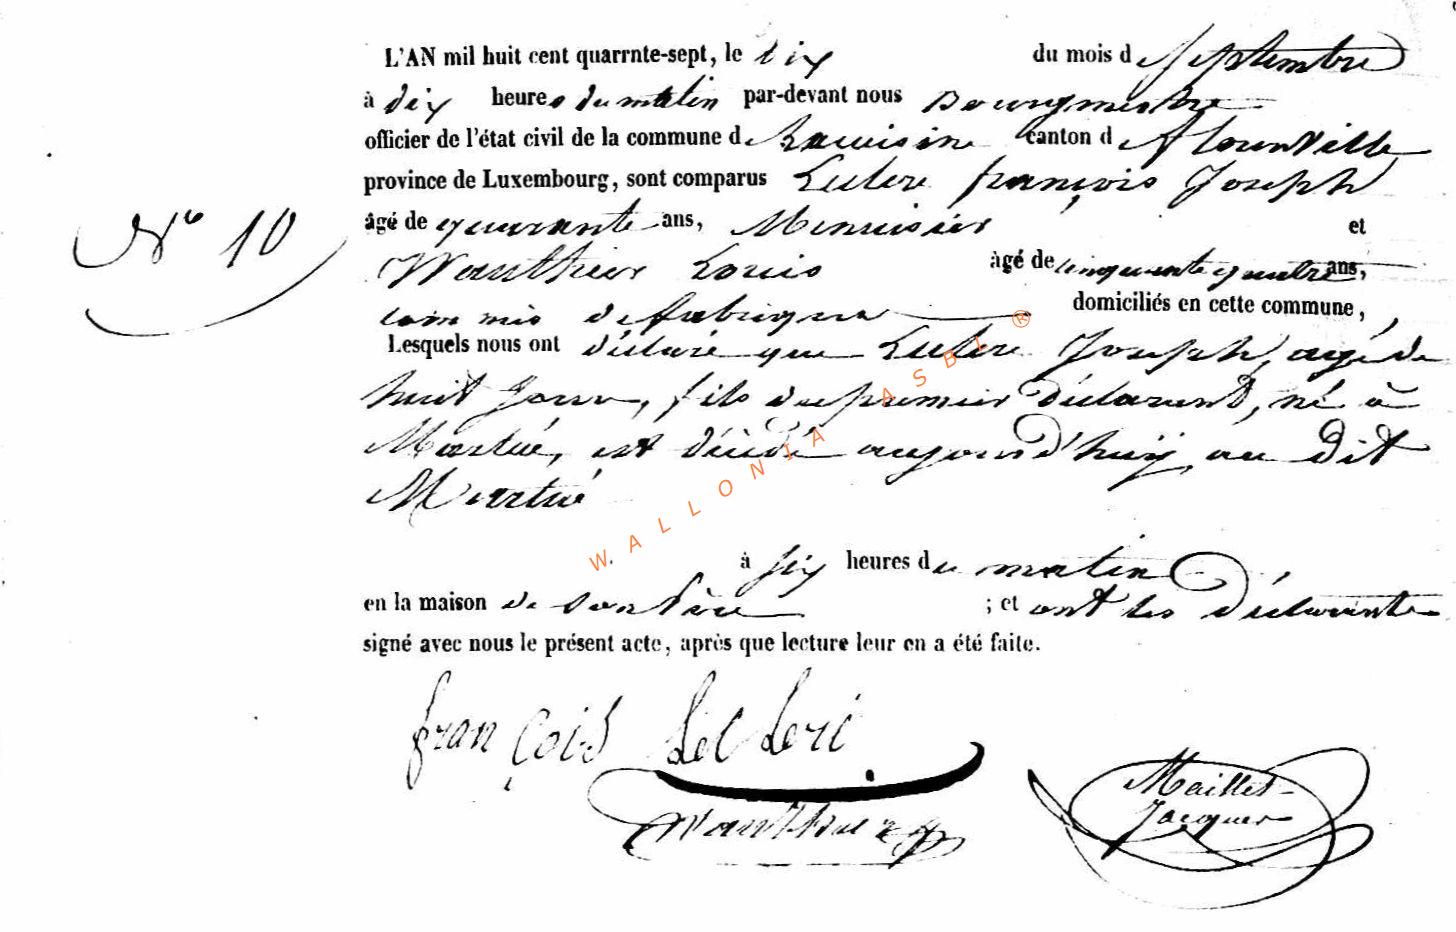 L'AN mil huit cent quarrnte-sept, le dix du mois de Septembre
à dix heures du matin par-devant nous Bourgmestre
officier de l'état civil de la commune de canton de florenville
province de Luxembourg, sont comparus Leclere françois Joseph
âgé de quarante ans, Menuisier et
Wauthier Louis àgé de cinquante quatre ans,
commis de fabrique domiciliés en cette commune,
Lesquels nous ont déclaré que Leclere Joseph, agé de
huit jours, fils du premier déclarent, né à
Martué, est décédé aujourd'huy, au dit
Martué
N° 10
à six heures du matin
en la maison de son père ; et ont les déclarants
signé avec nous le présent acte, après que lecture leur en a été faite.
françois Leclere
Wauthier
Maillet
Jacques
WALLONIA ASBL ®